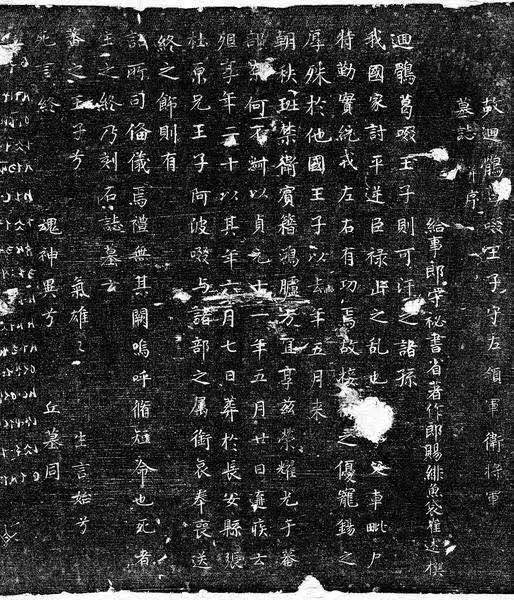 故迴鶻葛啜王子守左領軍衛將軍
墓誌并序
給事郎守秘書省著作郎賜緋魚袋崔述撰
迴鶻葛啜王子則可汗之諸孫
我國家討平逆臣祿山之亂也父車毗尸
特勤實統戎左右有功焉故接之優寵錫之
厚殊於他國王子以去年五月來
朝秩班禁衛賓籍鴻臚方宜享茲榮耀光于蕃
部奈何不淑以貞元十一年五月廿日遘疾云
殂享年二十以其年六月七日葬於長安縣張
杜原兄王子阿波啜与諸部之屬銜哀奉喪送
終之飾則有
詔所司備儀焉禮無其闕嗚呼脩短命也死者
生之終乃刻石誌墓云
蕃之王子兮 氣雄〻 生言始兮
死言終 魂神異兮 丘墓同